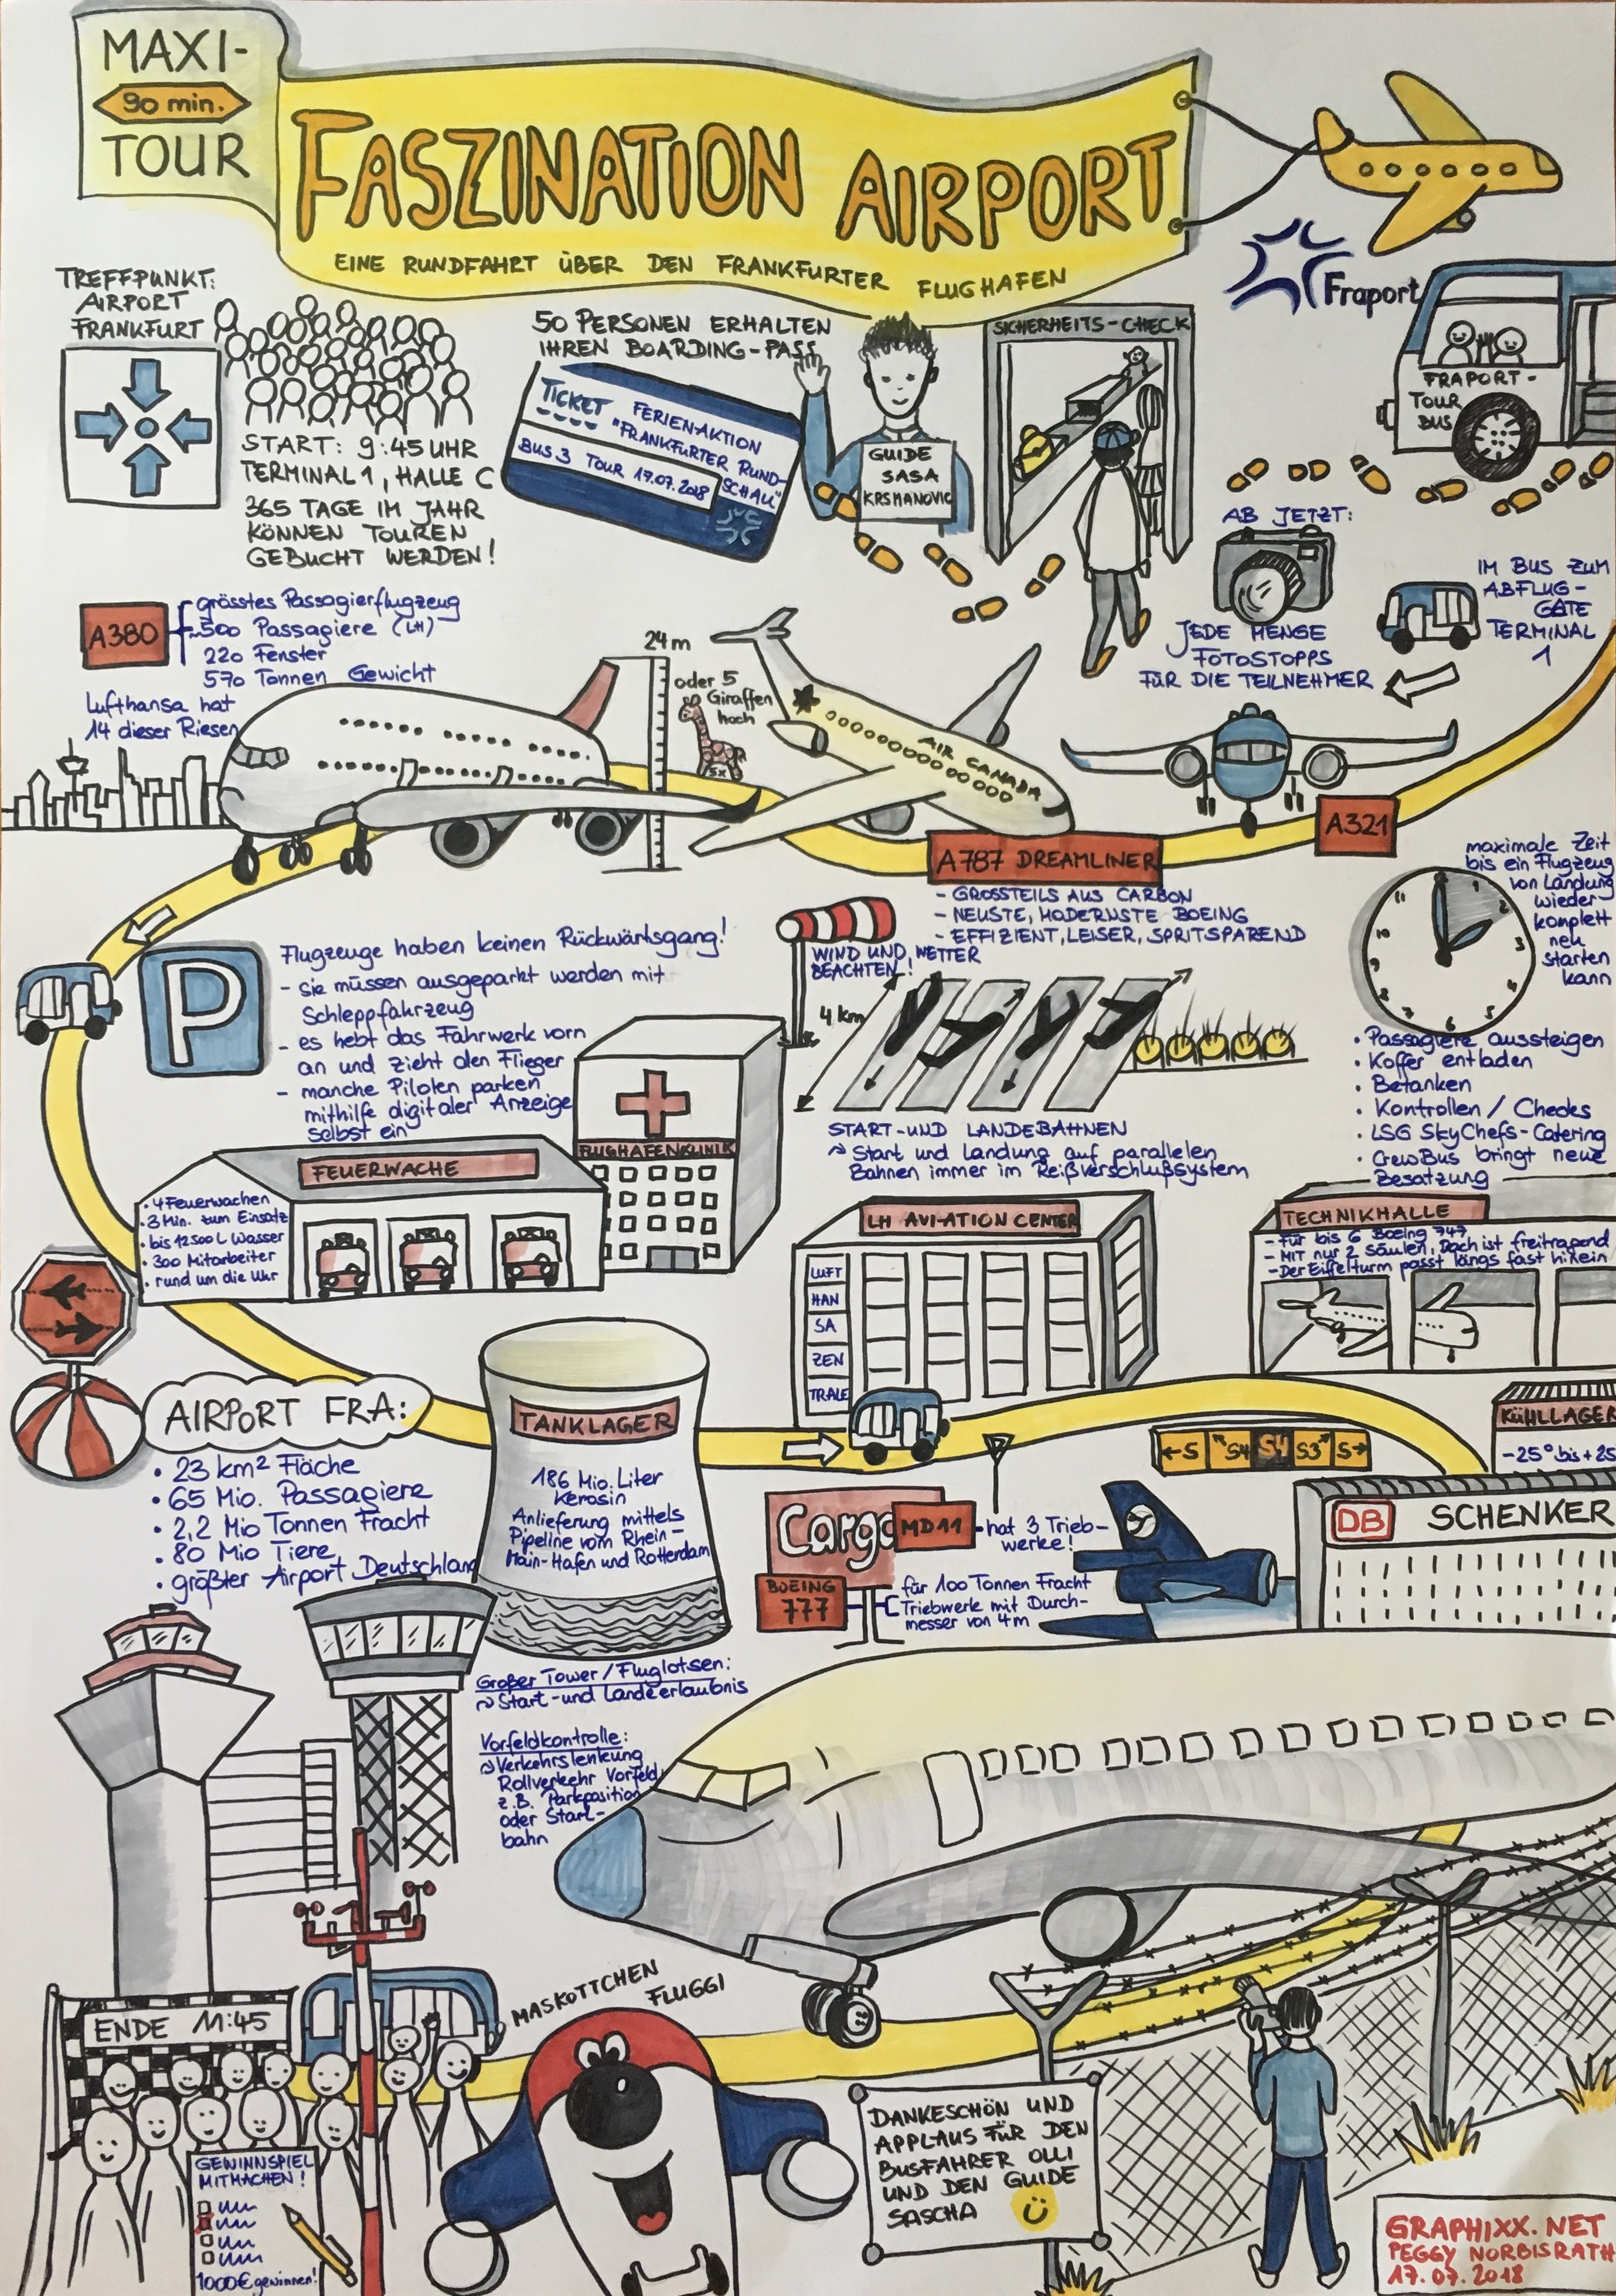 MAXI-
90 min.
TOUR
FASZINATION AIRPORT
EINE RUNDFAHRT ÜBER DEN FRANKFURTER FLUGHAFEN
Fraport
TREFFPUNKT:
AIRPORT
FRANKFURT
START: 9:45 UHR
TERMINAL 1, HALLE C
365 TAGE IM JAHR
KÖNNEN TOUREN
GEBUCHT WERDEN!
50 PERSONEN ERHALTEN
IHREN BOARDING-PASS
TICKET
FERIENAKTION
"FRANKFURTER RUND-
SCHAU"
BUS 3 TOUR 17.07.2018
GUIDE
SASA
KRSMANOVIC
SICHERHEITS-CHECK
FRAPORT-
TOUR
BUS
AB JETZT:
JEDE MENGE
FOTOSTOPPS
FÜR DIE TEILNEHMER
IM BUS ZUM
ABFLUG-
GATE
TERMINAL
1
A380
grösstes Passagierflugzeug
500 Passagiere (LH)
220 Fenster
570 Tonnen Gewicht
Lufthansa hat
14 dieser Riesen
24 m
oder 5
Giraffen
hoch
5x
AIR CANADA
A787 DREAMLINER
- GROSSTEILS AUS CARBON
- NEUSTE, MODERNSTE BOEING
- EFFIZIENT, LEISER, SPRITSPAREND
A321
maximale Zeit
bis ein Flugzeug
von Landung
wieder
komplett
neu
starten
kann
• Passagiere aussteigen
• Koffer entladen
• Betanken
• Kontrollen / Checks
• LSG SkyChefs-Catering
• CrewBus bringt neue
Besatzung
P
Flugzeuge haben keinen Rückwärtsgang!
- sie müssen ausgeparkt werden mit
Schleppfahrzeug
- es hebt das Fahrwerk vorn
an und zieht den Flieger
- manche Piloten parken
mithilfe digitaler Anzeige
selbst ein
WIND UND WETTER
BEACHTEN!
4 km
START-UND LANDEBAHNEN
Start und Landung auf parallelen
Bahnen immer im Reißverschlußsystem
FLUGHAFENKLINIK
FEUERWACHE
• 4 Feuerwachen
• 3 Min. zum Einsatz
• bis 12500 L Wasser
• 300 Mitarbeiter
• rund um die Uhr
LH AVIATION CENTER
LUFT
HAN
SA
ZEN
TRALE
TECHNIKHALLE
- für bis 6 Boeing 747
- MIT nur 2 Säulen, Dach ist freitragend
- Der Eiffelturm passt längs fast hinein
AIRPORT FRA:
• 23 km² Fläche
• 65 Mio. Passagiere
• 2,2 Mio Tonnen Fracht
• 80 Mio Tiere
• größter Airport Deutschland
TANKLAGER
186 Mio. Liter
Kerosin
Anlieferung mittels
Pipeline vom Rhein-
Main-Hafen und Rotterdam
←S S4 S1 S3 S→
KÜHLLAGER
-25° bis +25
Cargo
MD11
hat 3 Trieb-
werke!
BOEING
777
für 100 Tonnen Fracht
Triebwerke mit Durch-
messer von 4m
DB SCHENKER
Großer Tower / Fluglotsen:
Start-und Landeerlaubnis
Vorfeldkontrolle:
Verkehrslenkung
Rollverkehr Vorfeld
z.B. Parkposition
oder Start-
bahn
ENDE 11:45
MASKOTTCHEN
FLUGGI
GEWINNSPIEL
MITMACHEN!
1000€ gewinnen!
DANKESCHÖN UND
APPLAUS FÜR DEN
BUSFAHRER OLLI
UND DEN GUIDE
SASCHA
GRAPHIXX.NET
PEGGY NORBISRATH
17.07.2018